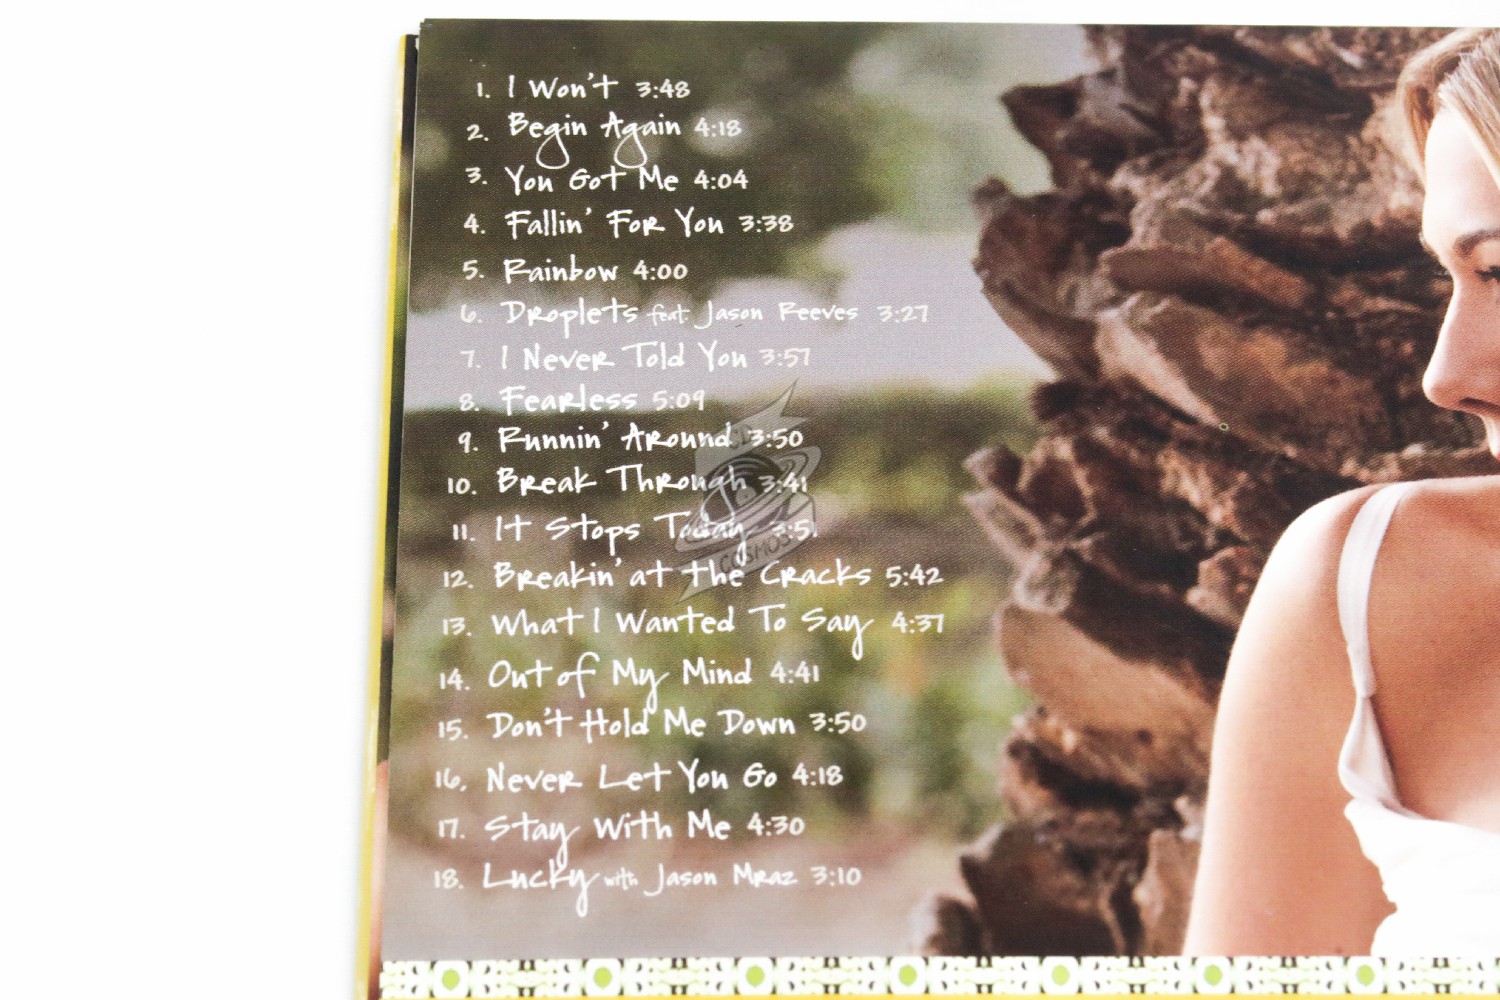 1. I Won't 3:48
2. Begin Again 4:18
3. You Got Me 4:04
4. Fallin' For You 3:38
5. Rainbow 4:00
6. Droplets feat Jason Reeves 3:27
7. I Never Told You 3:57
8. Fearless 5:09
9. Runnin' Around 3:50
10. Break Through 3:41
11. It Stops Today 3:51
12. Breakin' at the Cracks 5:42
13. What I Wanted To Say 4:37
14. Out of My Mind 4:41
15. Don't Hold Me Down 3:50
16. Never Let You Go 4:18
17. Stay With Me 4:30
18. Lucky with Jason Mraz 3:10
CD
COSMOS